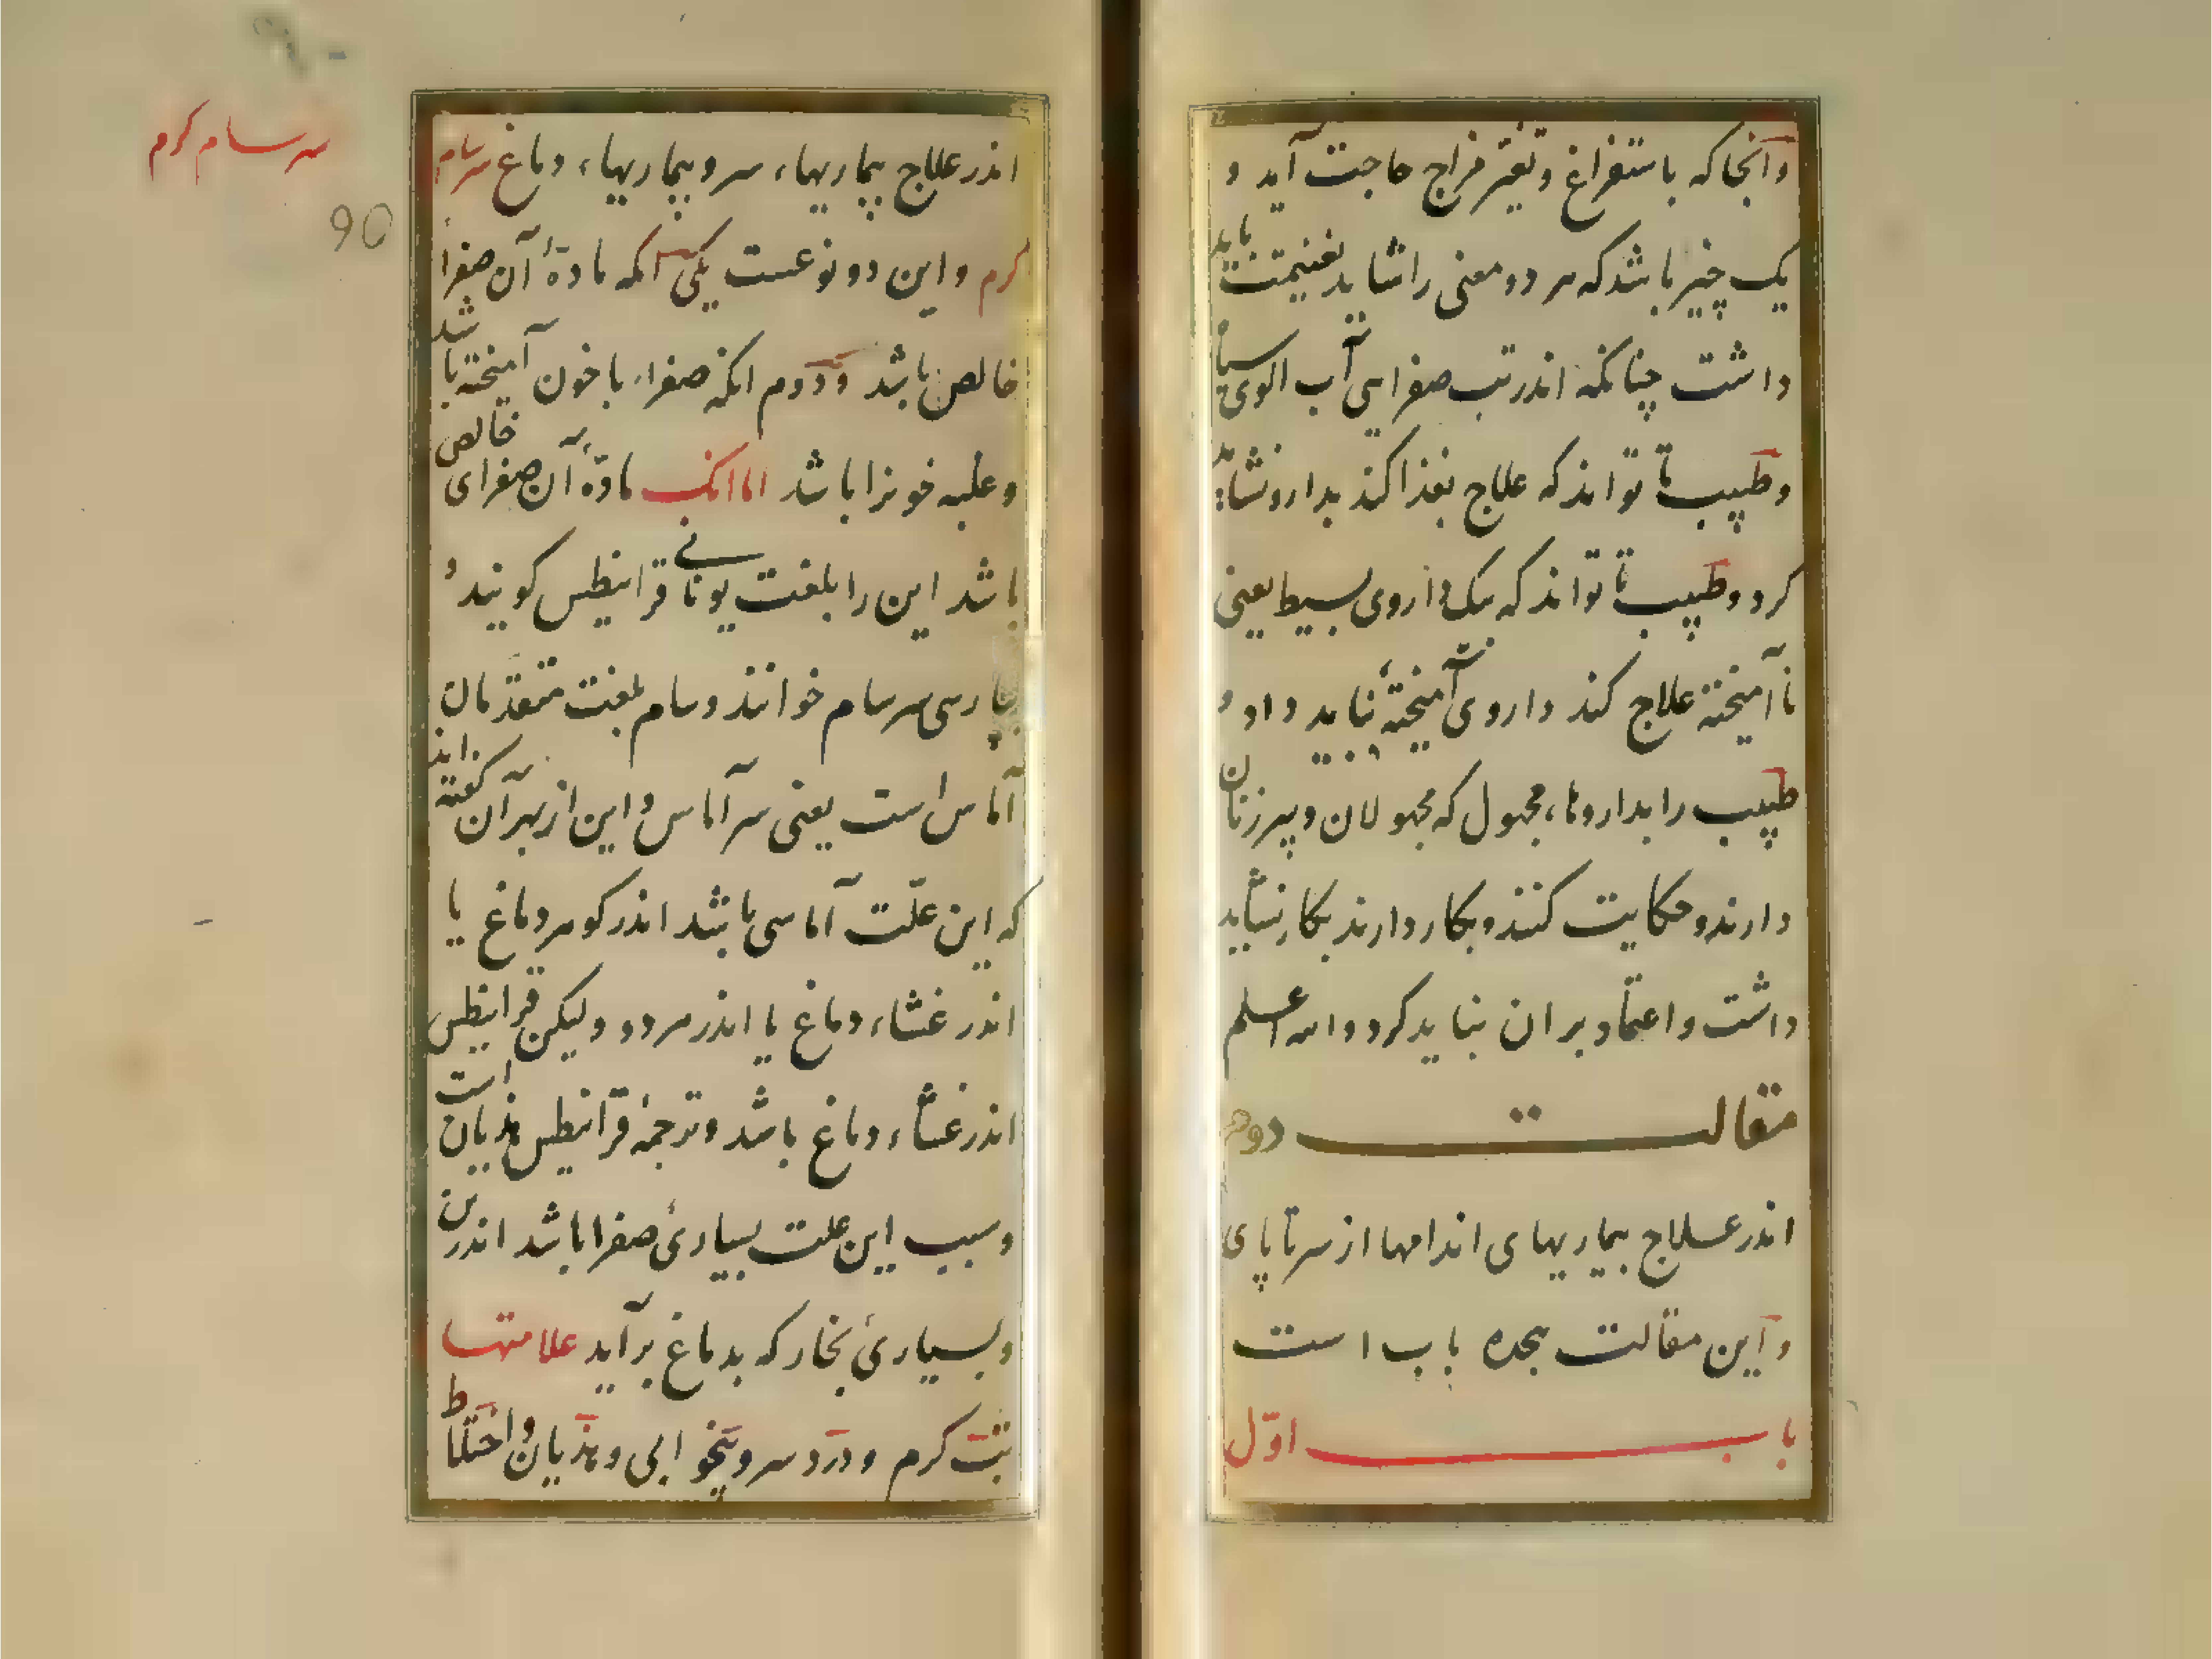 وآنجا که باستفراغ و تغیر مزاج حاجت آید و
یک چیز باشد که هر دو معنی را شاید بغنیمت باید
داشت چنانکه اندر تب صفرایی آب الوی سیاه
و طبیب تا تواند که علاج بغذا کند بدارو نشاید
کرد و طبیب تا تواند که بیک داروی بسیط یعنی
ناآمیخته علاج کند داروی آمیخته نباید داد و
طبیب را بداروهاء مجهول که مجهولان و پیرزنان
دارند و حکایت کنند و بکار دارند بکار نشاید
داشت و اعتماد بران نباید کرد والله اعلم
مقالت دوم
اندر علاج بیماریهای اندامها از سر تا پای
و این مقالت هجده باب است
باب اوّل
سرسام کرم
90
اندر علاج بیماریهاء سر و بیماریهاء دماغ سرسام
کرم و این دو نوعست یکی آنکه مادهٔ آن صفرا
خالص باشد و دوم انکه صفراء با خون آمیخته باشد
و غلبه خونرا باشد اما انک مادّهٔ آن صفرای خالص
باشد این را بلغت یونانی قرانیطس کویند و
بپارسی سرسام خوانند و سام بلغت متقدمان
آماس است یعنی سر آماس و این از بهر آن کفته اند
که این علّت آماسی باشد اندر کوهر دماغ یا
اندر غشاء دماغ یا اندر هر دو ولیکن قرانیطس
اندر غشاء دماغ باشد و ترجمهٔ قرانیطس هذیان است
و سبب این علت بسیاریٔ صفرا باشد اندر تن
و بسیاریٔ بخار که بدماغ برآید علامتها
تب کرم و درد سر و بیخوابی و هذیان و اختلاط